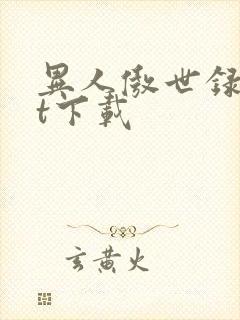 異人傲世録
t下載
玄黄火